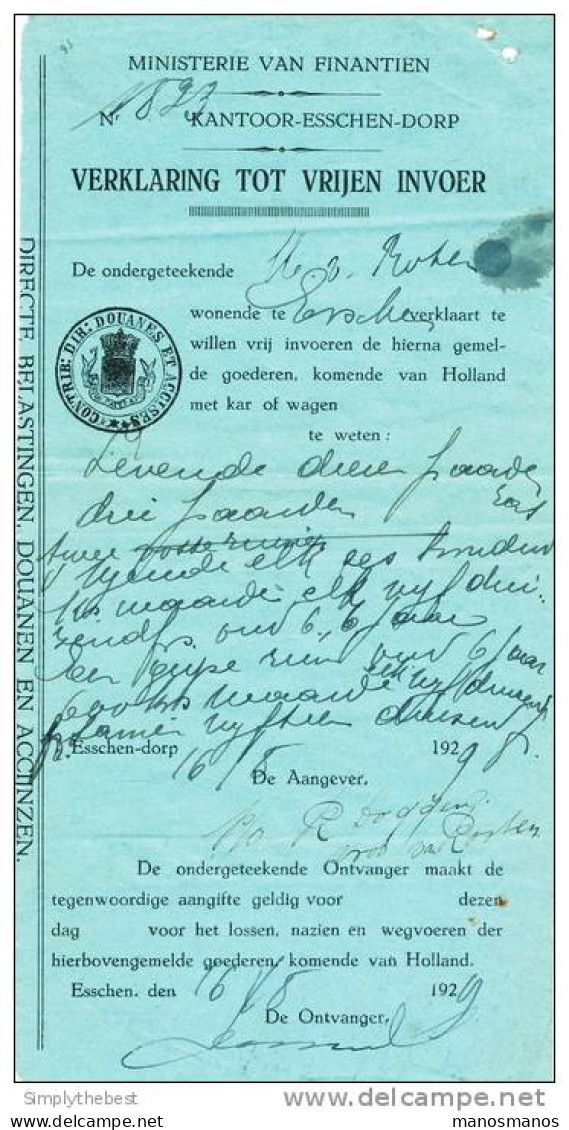 MINISTERIE VAN FINANTIEN
Nr 1823 KANTOOR-ESSCHEN-DORP
VERKLARING TOT VRIJEN INVOER
De ondergeteekende
wonende te Esschen verklaart te
willen vrij invoeren de hierna gemel-
de goederen, komende van Holland
met kar of wagen
te weten :
CONTRIB: DIR: DOUANES ET ACCISES
DIRECTE BELASTINGEN, DOUANEN EN ACCIJNZEN.
Levende dieren paarden
drie paarden
twee
elk zes honderd
kgs waarde elk vijf dui-
zend frs oud 6, 6 jaar
Een grijze ruin oud 6 jaar
600 kgs waarde elk vijf duizend
samen vijftien duizend
Esschen-dorp 16/8 1929
De Aangever,
De ondergeteekende Ontvanger maakt de
tegenwoordige aangifte geldig voor dezen
dag voor het lossen, nazien en wegvoeren der
hierbovengemelde goederen, komende van Holland.
Esschen, den 16/8 1929
De Ontvanger,
Simplythebest
delcampe.net
manosmanos